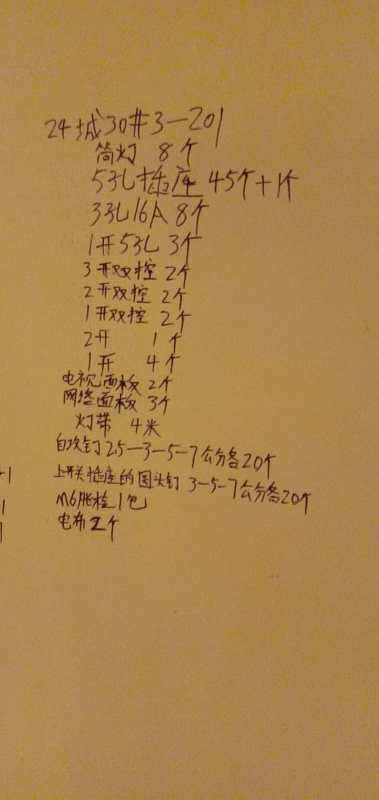 24城30#3-201
筒灯 8个
5孔插座 45个+1个
3孔16A 8个
1开5孔 3个
3开双控 2个
2开双控 2个
1开双控 2个
2开 1个
1开 4个
电视面板 2个
网络面板 3个
灯带 4米
自攻钉 25-3-5-7公分各20个
上开关插座的园头钉 3-5-7公分各20个
M6胀栓1包
电布2个